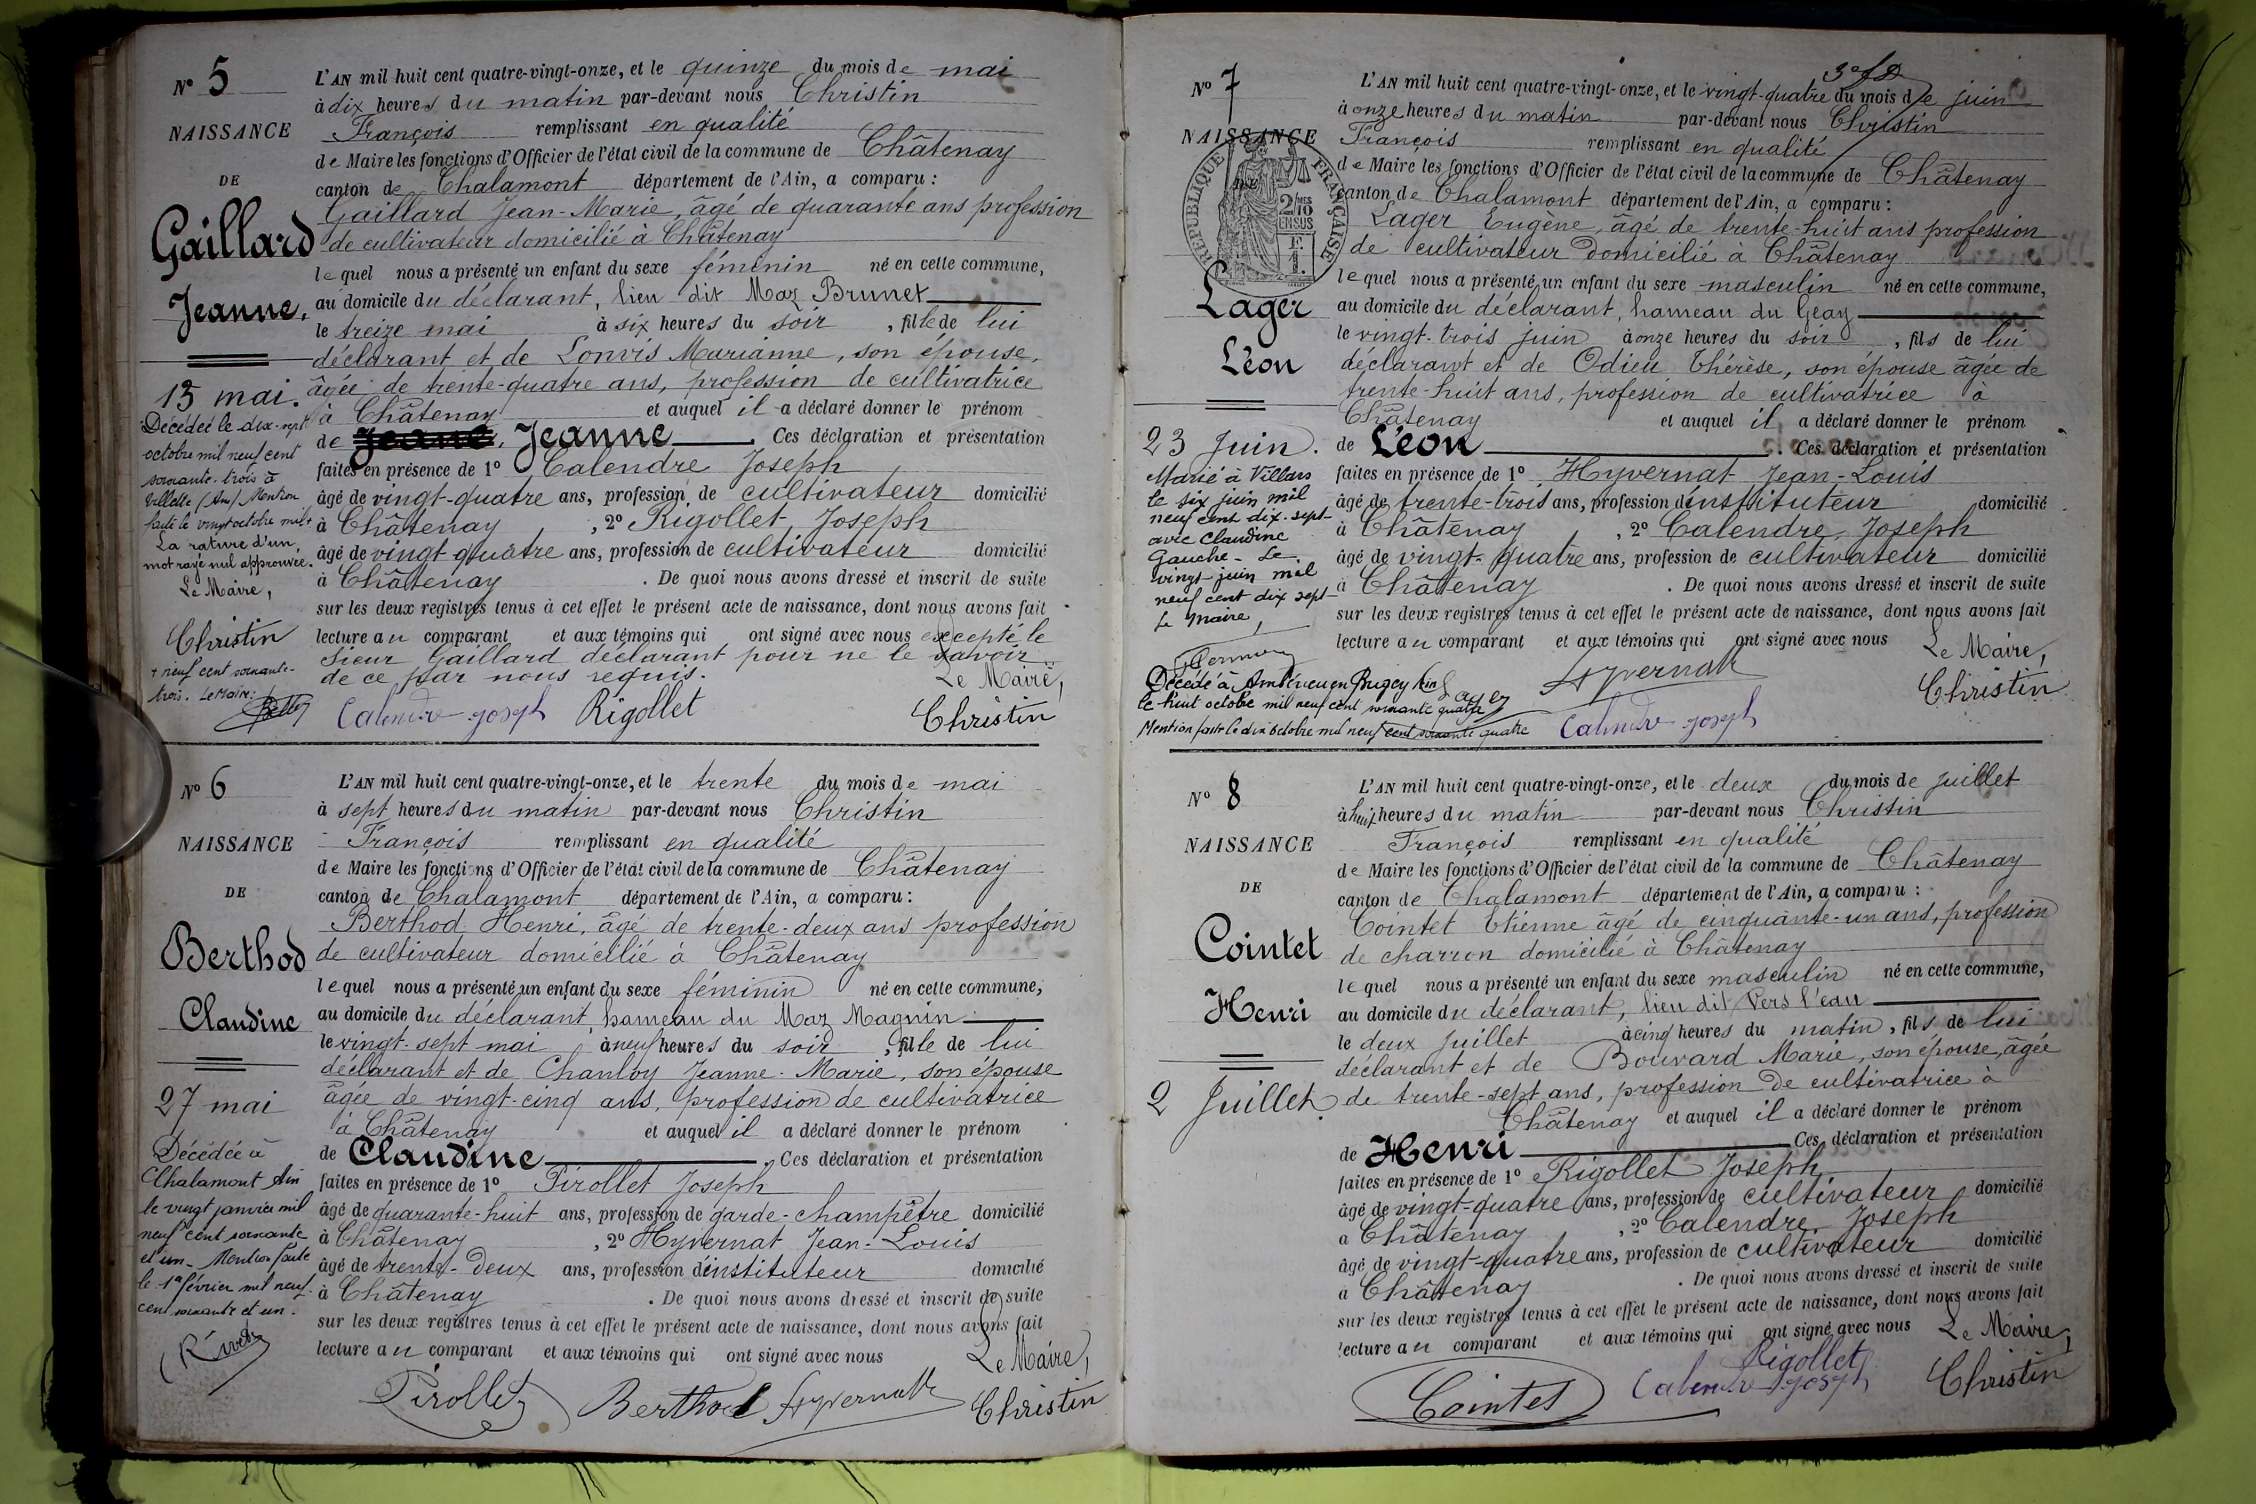 N° 5
NAISSANCE
DE
Gaillard
Jeanne,
13 mai.
Décédée le dix-sept
octobre mil neuf cent
soixante-trois à
Villette (Ain) Mention
faite le vingt octobre mil +
La rature d'un
mot rayé nul approuvée.
Le Maire,
Christin
+ neuf cent soixante-
trois. Le Maire:
L'AN mil huit cent quatre-vingt-onze, et le quinze du mois de mai
à dix heures du matin par-devant nous Christin
François remplissant en qualité
de Maire les fonctions d'Officier de l'état civil de la commune de Châtenay
canton de Chalamont département de l'Ain, a comparu :
Gaillard Jean-Marie, âgé de quarante ans profession
de cultivateur domicilié à Châtenay
lequel nous a présenté un enfant du sexe féminin né en cette commune,
au domicile du déclarant, lieu dit Maz Brunet
le treize mai à six heures du soir, fille de lui
déclarant et de Lonvis Marianne, son épouse,
âgée de trente-quatre ans, profession de cultivatrice
à Châtenay et auquel il a déclaré donner le prénom
de Jeanne. Ces déclaration et présentation
faites en présence de 1° Calendre Joseph
âgé de vingt-quatre ans, profession de cultivateur domicilié
à Châtenay, 2° Rigollet, Joseph
âgé de vingt quatre ans, profession de cultivateur domicilié
à Châtenay. De quoi nous avons dressé et inscrit de suite
sur les deux registres tenus à cet effet le présent acte de naissance, dont nous avons fait
lecture au comparant et aux témoins qui ont signé avec nous excepté le
Sieur Gaillard déclarant pour ne le savoir
de ce par nous requis. Le Maire,
Calendre Joseph Rigollet Christin
N° 6
NAISSANCE
DE
Berthod
Claudine
27 mai
Décédée à
Chalamont Ain
le vingt janvier mil
neuf cent soixante
et un. Mention faite
le 1er février mil neuf
cent soixante et un.
L'AN mil huit cent quatre-vingt-onze, et le trente du mois de mai
à sept heures du matin par-devant nous Christin
François remplissant en qualité
de Maire les fonctions d'Officier de l'état civil de la commune de Châtenay
canton de Chalamont département de l'Ain, a comparu :
Berthod Henri, âgé de trente-deux ans profession
de cultivateur domicilié à Châtenay
lequel nous a présenté un enfant du sexe féminin né en cette commune,
au domicile du déclarant, hameau du Maz Magnin
le vingt-sept mai à neuf heures du soir, fille de lui
déclarant et de Chanloy Jeanne-Marie, son épouse
âgée de vingt-cinq ans, profession de cultivatrice
à Châtenay et auquel il a déclaré donner le prénom
de Claudine. Ces déclaration et présentation
faites en présence de 1° Pirollet Joseph
âgé de quarante-huit ans, profession de garde-champêtre domicilié
à Châtenay, 2° Hyvernat Jean-Louis
âgé de trente-deux ans, profession d'instituteur domicilié
à Châtenay. De quoi nous avons dressé et inscrit de suite
sur les deux registres tenus à cet effet le présent acte de naissance, dont nous avons fait
lecture au comparant et aux témoins qui ont signé avec nous Le Maire,
Pirollet Berthod Hyvernat Christin
N° 7
NAISSANCE
RÉPUBLIQUE FRANÇAISE
2/10 EN SUS
Lager
Léon
23 Juin.
Marié à Villars
le six juin mil
neuf cent dix-sept
avec Claudine
Gauche - Le
vingt juin mil
neuf cent dix sept
Le Maire,
Décédé à Ambérieu en Bugey Ain
le huit octobre mil neuf cent soixante quatre
Mention faite le dix octobre mil neuf cent soixante quatre
L'AN mil huit cent quatre-vingt-onze, et le vingt-quatre du mois de juin
à onze heures du matin par-devant nous Christin
François remplissant en qualité
de Maire les fonctions d'Officier de l'état civil de la commune de Châtenay
canton de Chalamont département de l'Ain, a comparu :
Lager Eugène, âgé de trente-huit ans profession
de cultivateur domicilié à Châtenay
lequel nous a présenté un enfant du sexe masculin né en cette commune,
au domicile du déclarant, hameau du Geay
le vingt-trois juin à onze heures du soir, fils de lui
déclarant et de Odieu Thérèse, son épouse âgée de
trente-huit ans, profession de cultivatrice à
Châtenay et auquel il a déclaré donner le prénom
de Léon. Ces déclaration et présentation
faites en présence de 1° Hyvernat Jean-Louis
âgé de trente-trois ans, profession d'instituteur domicilié
à Châtenay, 2° Calendre, Joseph
âgé de vingt-quatre ans, profession de cultivateur domicilié
à Châtenay. De quoi nous avons dressé et inscrit de suite
sur les deux registres tenus à cet effet le présent acte de naissance, dont nous avons fait
lecture au comparant et aux témoins qui ont signé avec nous Le Maire,
Lager Hyvernat Christin
Calendre Joseph
N° 8
NAISSANCE
DE
Cointet
Henri
2 Juillet.
L'AN mil huit cent quatre-vingt-onze, et le deux du mois de juillet
à huit heures du matin par-devant nous Christin
François remplissant en qualité
de Maire les fonctions d'Officier de l'état civil de la commune de Châtenay
canton de Chalamont département de l'Ain, a comparu :
Cointet Etienne âgé de cinquante-un ans, profession
de charron domicilié à Châtenay
lequel nous a présenté un enfant du sexe masculin né en cette commune,
au domicile du déclarant, lieu dit Vers l'eau
le deux juillet à cinq heures du matin, fils de lui
déclarant et de Bouvard Marie, son épouse, âgée
de trente-sept ans, profession de cultivatrice à
Châtenay et auquel il a déclaré donner le prénom
de Henri. Ces déclaration et présentation
faites en présence de 1° Rigollet Joseph
âgé de vingt-quatre ans, profession de cultivateur domicilié
à Châtenay, 2° Calendre, Joseph
âgé de vingt-quatre ans, profession de cultivateur domicilié
à Châtenay. De quoi nous avons dressé et inscrit de suite
sur les deux registres tenus à cet effet le présent acte de naissance, dont nous avons fait
lecture au comparant et aux témoins qui ont signé avec nous Le Maire,
Rigollet
Cointet Calendre Joseph Christin